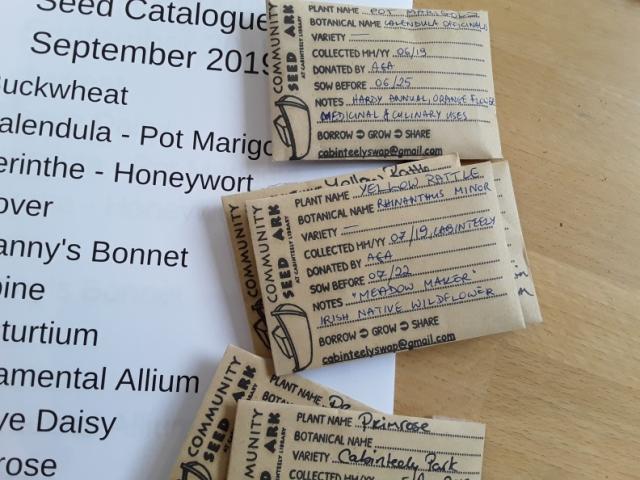 Seed Catalogue
September 2019
Buckwheat
alendula - Pot Marigo
erinthe - Honeywort
over
anny's Bonnet
oine
turtium
amental Allium
ye Daisy
rose
COMMUNITY
SEED ARK
AT CABINTEELY LIBRARY
PLANT NAME POT MARIGOLD
BOTANICAL NAME CALENDULA OFFICINALIS
VARIETY —
COLLECTED MM/YY 06/19
DONATED BY A&A
SOW BEFORE 06/25
NOTES HARDY ANNUAL, ORANGE FLOWER
MEDICINAL & CULINARY USES
BORROW GROW SHARE
cabinteelyswap@gmail.com
Yellow Rattle
COMMUNITY
COMMUNITY
SEED ARK
AT CABINTEELY LIBRARY
PLANT NAME YELLOW RATTLE
BOTANICAL NAME RHINANTHUS MINOR
VARIETY —
COLLECTED MM/YY 07/19, CABINTEELY
DONATED BY A&A
SOW BEFORE 07/22
NOTES "MEADOW MAKER"
IRISH NATIVE WILDFLOWER
BORROW GROW SHARE
cabinteelyswap@gmail.com
COMMUNITY
ARK
PLANT NAME
MUNITY
ARK
LIBRARY
PLANT NAME Primrose
BOTANICAL NAME
VARIETY Cabinteely Park
COLLECTED MM/YY